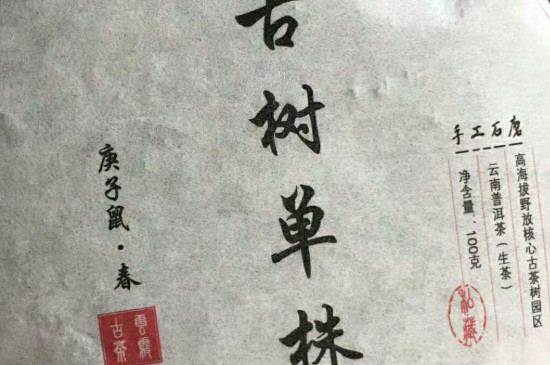 高海拔野放核心古茶树园区
云南普洱茶（生茶）
净含量：100克
手工石磨
古树单株
庚子鼠·春
古茶